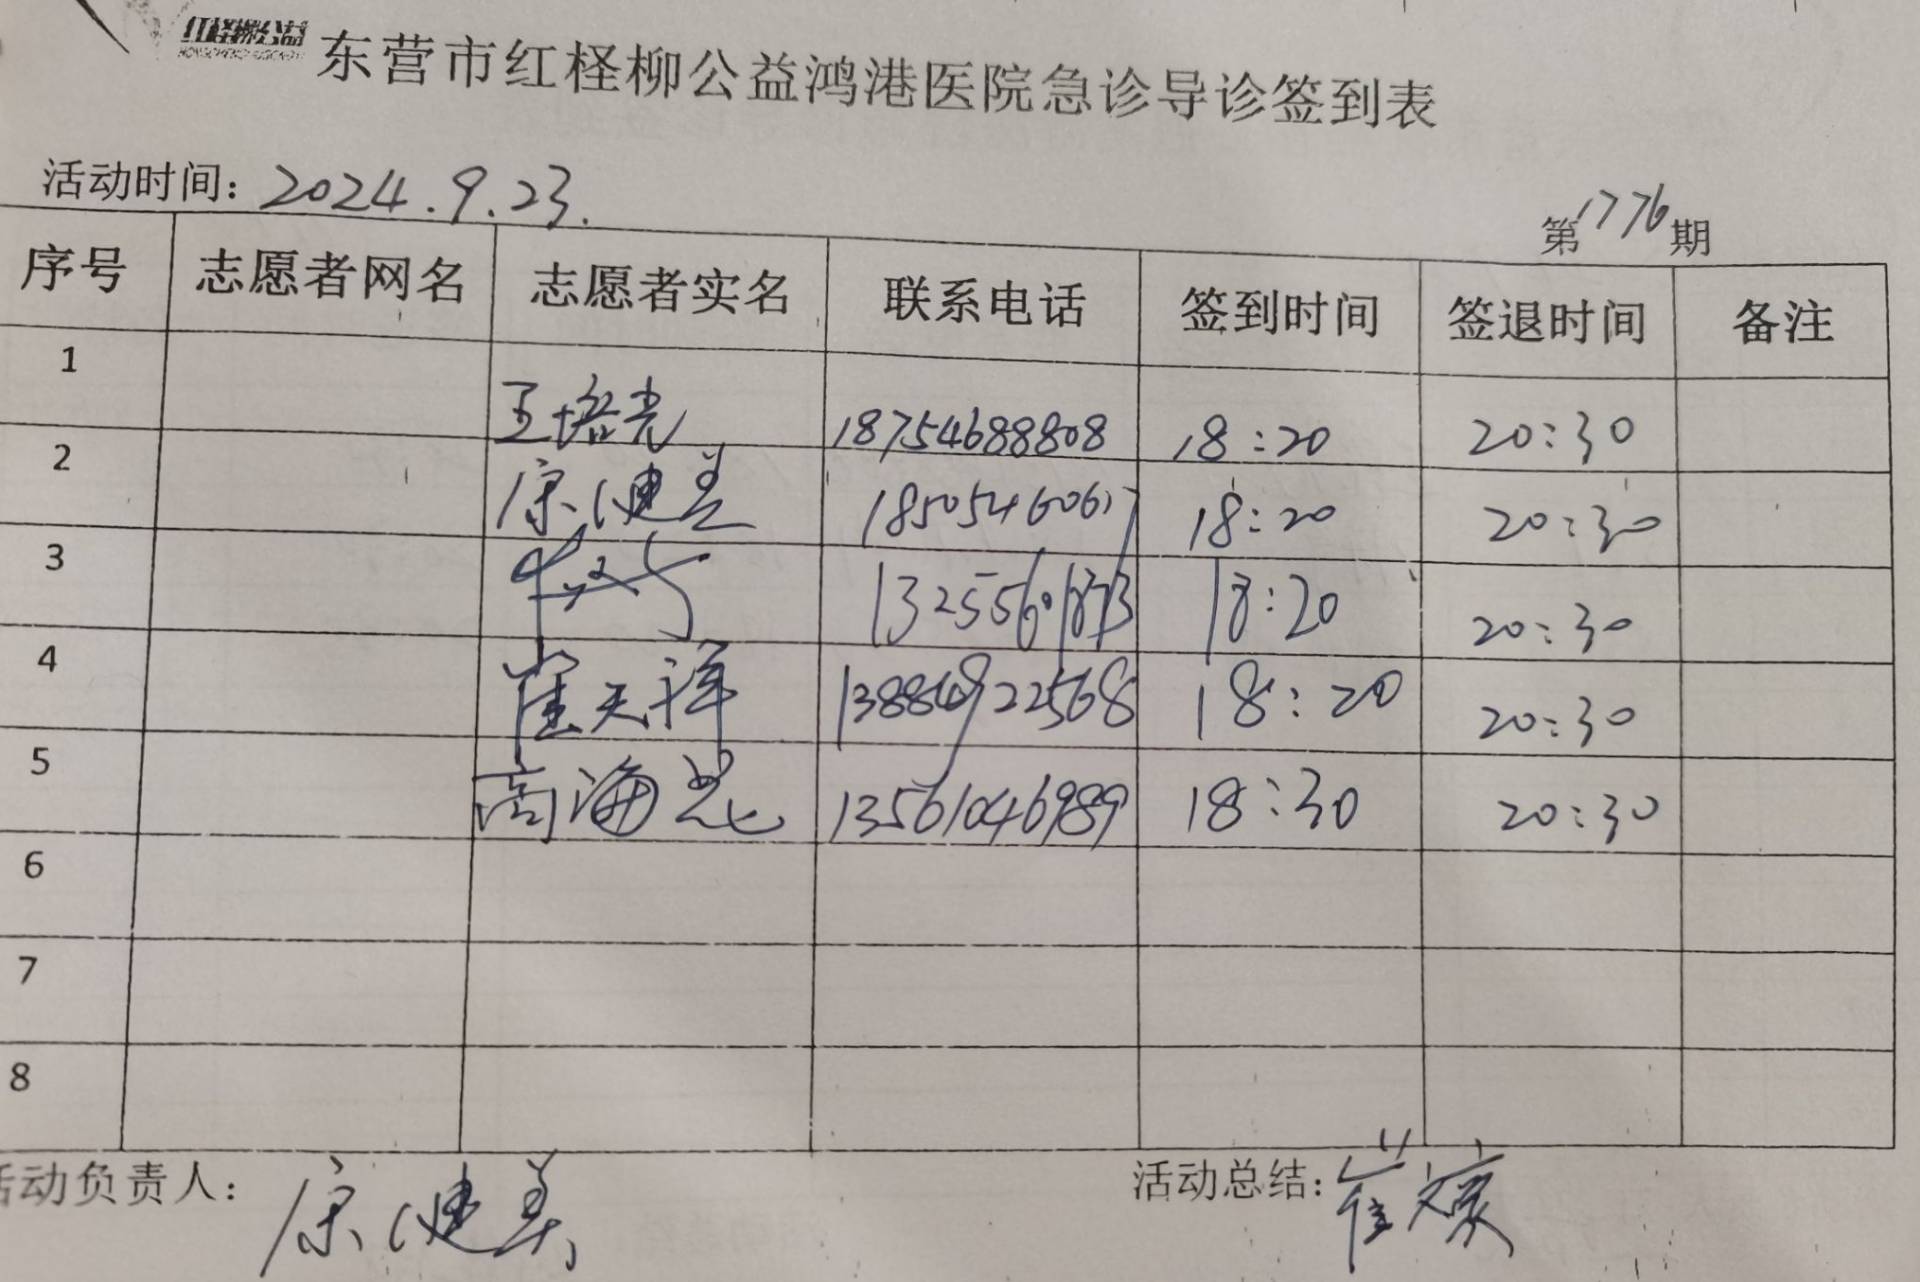 红柽柳公益
东营市红柽柳公益鸿港医院急诊导诊签到表
活动时间：2024.9.23.
第1776期
序号 志愿者网名 志愿者实名 联系电话 签到时间 签退时间 备注
1 王培光 18754688808 18:20 20:30
2 康健美 18505460617 18:20 20:30
3 18:20 20:30
4 崔天祥 18:20 20:30
5 高海龙 13561046989 18:30 20:30
6
7
8
活动负责人：康健美
活动总结：崔